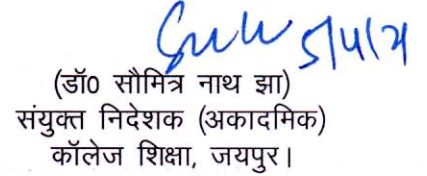 5/4/21
(डॉ0 सौमित्र नाथ झा)
संयुक्त निदेशक (अकादमिक)
कॉलेज शिक्षा, जयपुर।